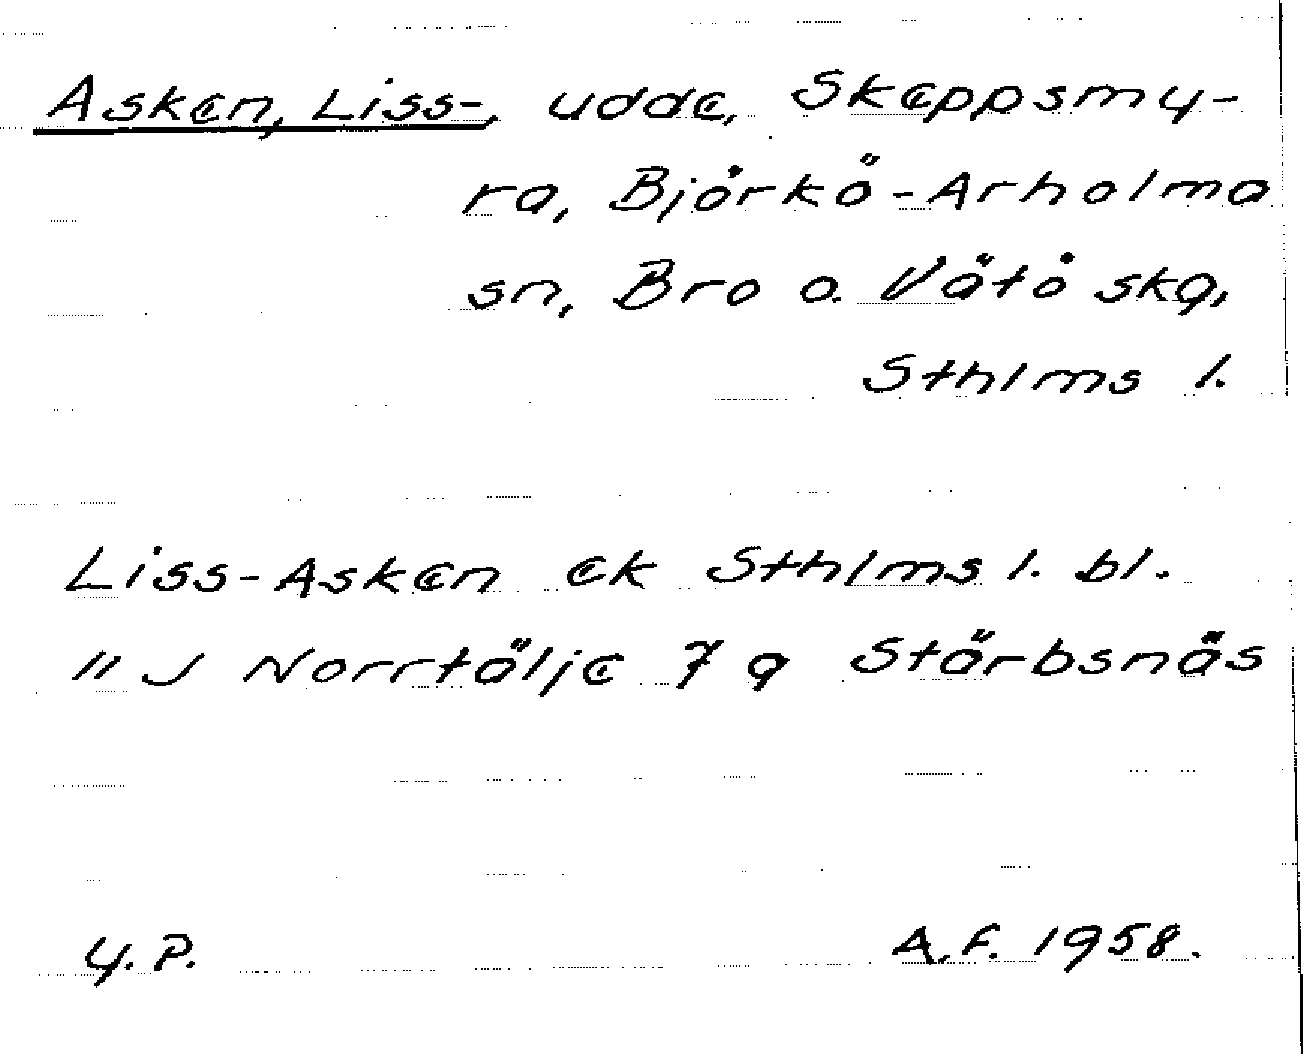 Asken, Liss-, udde, Skeppsmy-
ra, Björkö-Arholma
sn, Bro o. Vätö skg,
Sthlms l.
Liss-Asken ek Sthlms l. bl.
" J Norrtälje 7 g Stärbsnäs
Y.P. A.F. 1958.